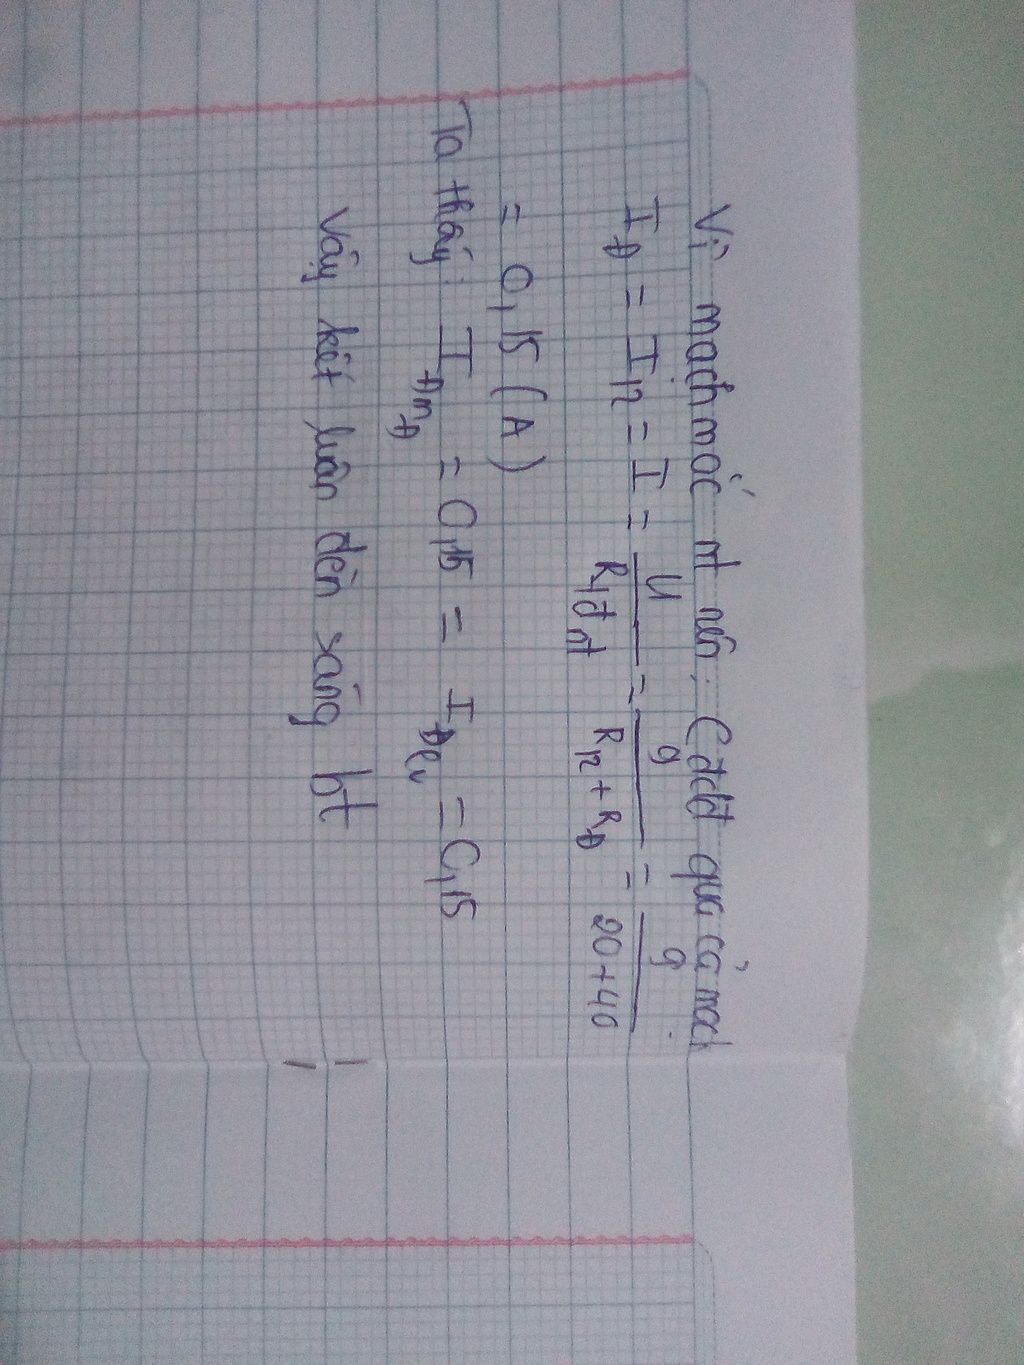 Vì mạch mắc nt nên: Cđdđ qua cả mạch
I_Đ = I_12 = I = U / R_1đ nt = 9 / R_12 + R_Đ = 9 / 20+40
= 0,15 (A)
Ta thấy: I_Đm_Đ = 0,15 = I_Đlv = 0,15
Vậy kết luận đèn sáng bt